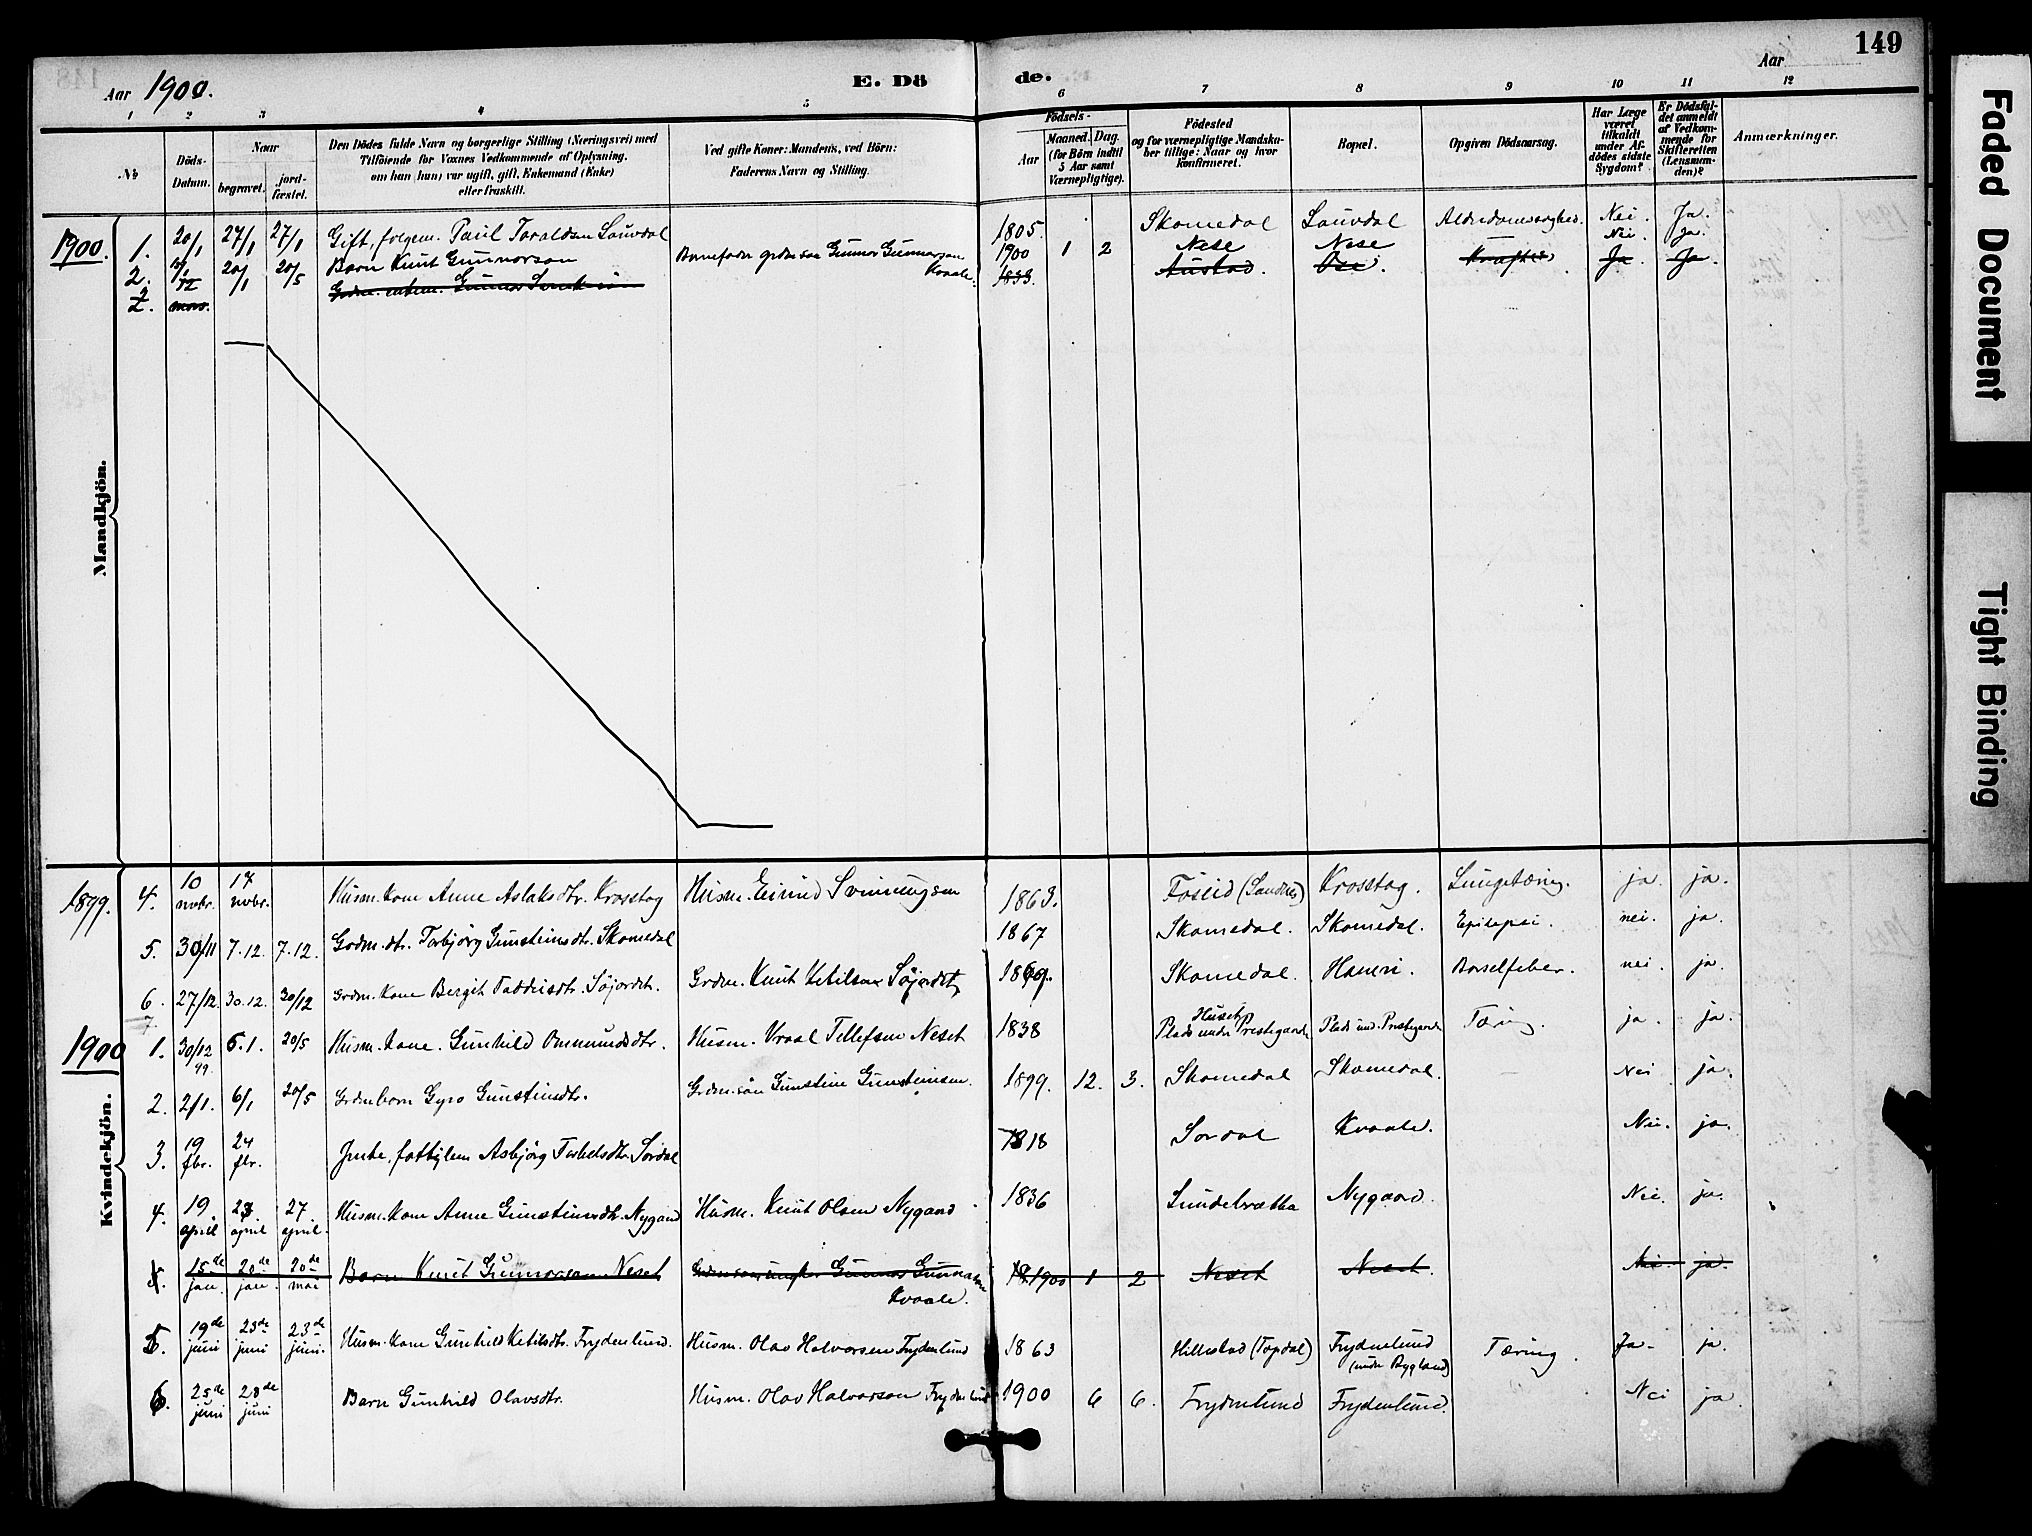 149
Aar 1900. E. Dö de. Aar
1 2 3 4 5 6 7 8 9 10 11 12
№ Döds-Datum. Naar begravet. jordfæstet. Den Dödes fulde Navn og borgerlige Stilling (Næringsvei) med Tilföiende for Voxnes Vedkommende af Oplysning, om han (hun) var ugift, gift, Enkemand (Enke) eller fraskilt. Ved gifte Koner: Mandens, ved Börn: Faderens Navn og Stilling. Födsels- Aar Maaned. Dag. (for Börn indtil 5 Aar samt Værnepligtige). Födested og for værnepligtige Mandskaber tillige: Naar og hvor konfirmeret. Bopæl. Opgiven Dödsaarsag. Har Læge været tilkaldt under Afdödes sidste Sygdom? Er Dödsfaldet anmeldt af Vedkommende for Skifteretten (Lensmanden)? Anmærkninger.
Mandkjön.
1900. 1. 20/1 27/1 27/1 Gift, folgem. Paul Taraldsen Lauvdal 1805. Skomedal Lauvdal Alderdomssvaghed. Nei. Ja.
2. 20/1 20/5 Barn Knut Gunnarson Barnefader grdm.søn Gunnar Gunnarson Kvaale. 1900 1 2 Nese Nese Nei. Ja.
2. Grdm. enkem. Gunnar 1833. Austad. Ose. Kræft Ja. Ja.
Kvindekjön.
1899. 4. 10 novbr. 17 novbr. Husm. kone Anne Aslaksdtr. Krosstag Husm. Eivind Svinungsen 1863. Føseid (Sandnes) Krosstag. Lungetæring. ja. ja.
5. 30/11 7.12. 7.12. Grdm. dtr. Torbjørg Gunsteinsdtr. Skomedal 1867 Skomedal. Skomedal. Epilepsi. nei. ja.
6. 27/12 30.12. 30/12 Grdm. kone Bergit Taddeisdtr. Søjordet. Grdm. Knut Ketilsen Søjordet Skomedal. Hamri. Barselfeber. nei. ja.
7.
1900 1. 30/12 99. 6.1. 20/5 Husm. kone. Gunhild Omundsdtr. Husm. Vraal Tellefsen Neset 1838 Huset Plads under Prestegaarde Plads und. Prestegaarde Tæring. ja. ja.
2. 2/1. 6/1 20/5 Grdm barn Gyro Gunsteinsdtr. Grdm. søn Gunstein Gunsteinsen. 1899. 12. 3. Skomedal Skomedal. Nei ja.
3. 19 fbr. 24 fbr. Jente, fattiglem Asbjørg Torkelsdtr. Sordal 1818 Sordal Kvaale. Nei. ja.
4. 19 april 23 april 27 april. Husm. kone Anne Gunsteinsdtr. Nygaard Husm. Knut Olsen Nygaard 1836 Sundebrætta Nygaard. Nei. ja.
15de jan. 20de jan. 20de mai Barn Knut Gunnarson Neset Grdmsøn ungk. Gunnar Gunnarsen Kvaale. 1900 1 2 Neset Neset. Nei. ja.
5. 19de juni 23de juni 23de juni. Husm. kone Gunhild Ketilsdtr. Frydenlund. Husm. Olav Halvorsen Frydenlund 1863 Hillestad (Topdal) Frydenlund (under Bygland) Tæring. Ja. ja.
6. 25de juni 28de juni Barn Gunhild Olavsdtr. Husm. Olav Halvorson Frydenlund 1900 6 6. Frydenlund Frydenlund. Nei ja.
Faded Document
Tight Binding